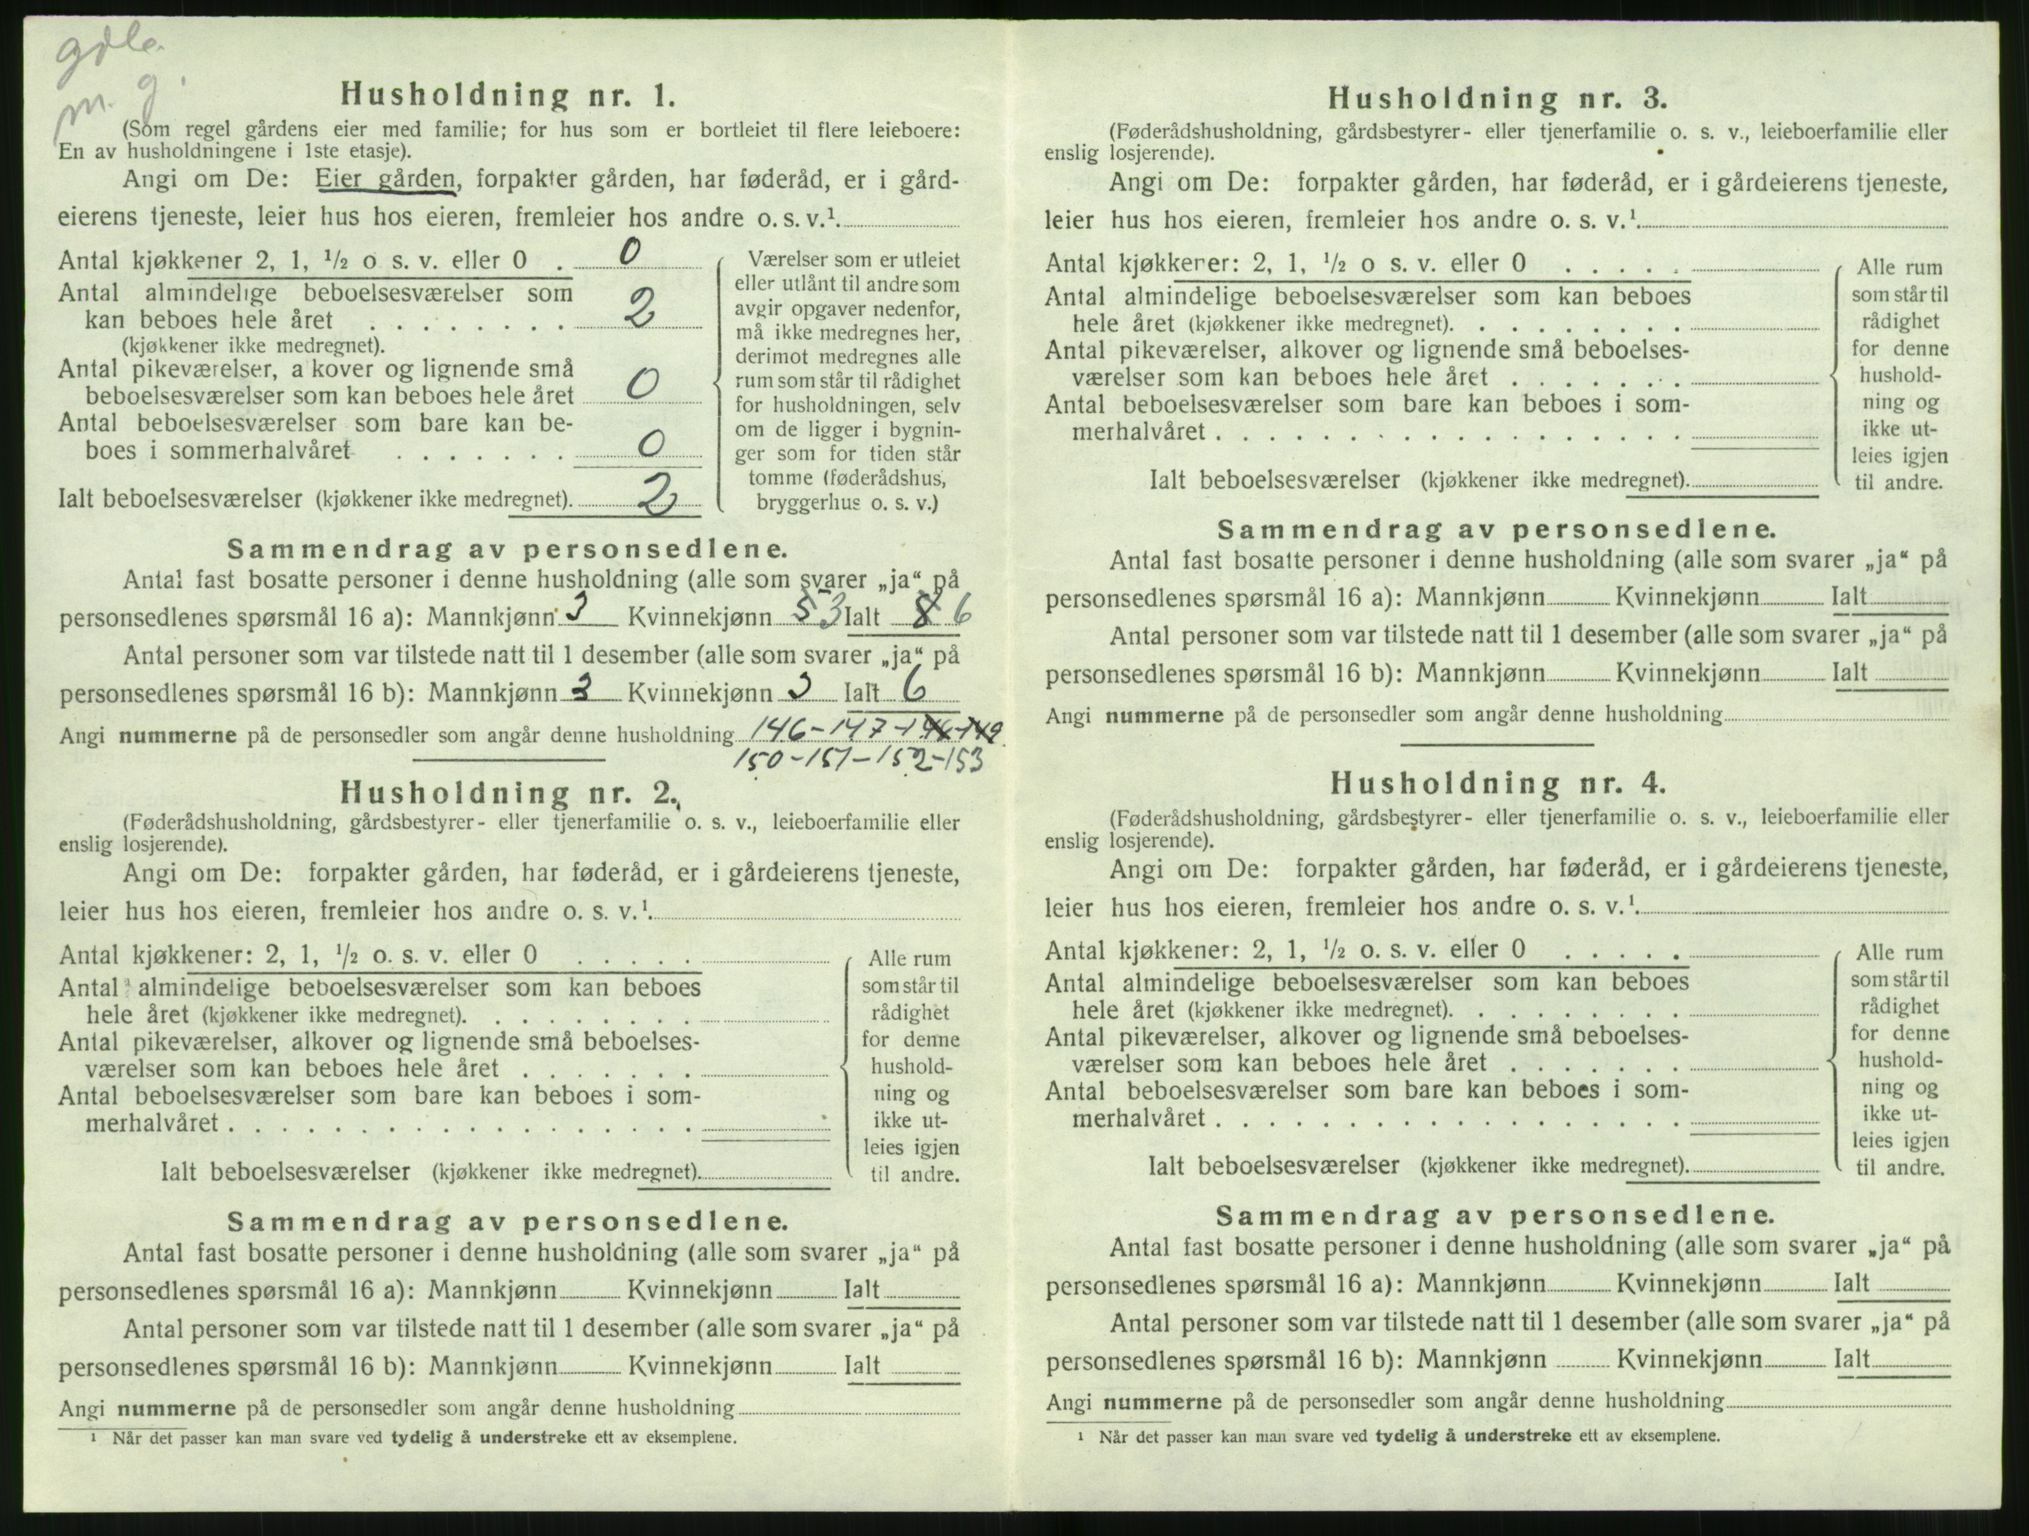 gdlo.
m. g.
Husholdning nr. 1.
(Som regel gårdens eier med familie; for hus som er bortleiet til flere leieboere:
En av husholdningene i 1ste etasje).
Angi om De: Eier gården, forpakter gården, har føderåd, er i gård-
eierens tjeneste, leier hus hos eieren, fremleier hos andre o. s. v.¹
Antal kjøkkener 2, 1, ½ o s. v. eller 0 . 0
Antal almindelige beboelsesværelser som
kan beboes hele året . . . . . . . . 2
(kjøkkener ikke medregnet).
Antal pikeværelser, a kover og lignende små
beboelsesværelser som kan beboes hele året 0
Antal beboelsesværelser som bare kan be-
boes i sommerhalvåret . . . . . . . 0
Ialt beboelsesværelser (kjøkkener ikke medregnet). 2
Værelser som er utleiet
eller utlånt til andre som
avgir opgaver nedenfor,
må ikke medregnes her,
derimot medregnes alle
rum som står til rådighet
for husholdningen, selv
om de ligger i bygnin-
ger som for tiden står
tomme (føderådshus,
bryggerhus o. s. v.)
Sammendrag av personsedlene.
Antal fast bosatte personer i denne husholdning (alle som svarer „ja“ på
personsedlenes spørsmål 16 a): Mannkjønn 3 Kvinnekjønn 5 3 Ialt 8 6
Antal personer som var tilstede natt til 1 desember (alle som svarer „ja“ på
personsedlenes spørsmål 16 b): Mannkjønn 3 Kvinnekjønn 3 Ialt 6
Angi nummerne på de personsedler som angår denne husholdning 146-147-148-149
150-151-152-153
Husholdning nr. 2.
(Føderådshusholdning, gårdsbestyrer- eller tjenerfamilie o. s. v., leieboerfamilie eller
enslig losjerende).
Angi om De: forpakter gården, har føderåd, er i gårdeierens tjeneste,
leier hus hos eieren, fremleier hos andre o. s. v.¹
Antal kjøkkener: 2, 1, ½ o. s. v. eller 0 . . . . .
Antal almindelige beboelsesværelser som kan beboes
hele året (kjøkkener ikke medregnet). . . . . . . . .
Antal pikeværelser, alkover og lignende små beboelses-
værelser som kan beboes hele året . . . . . . .
Antal beboelsesværelser som bare kan beboes i som-
merhalvåret . . . . . . . . . . . . . . . . . .
Ialt beboelsesværelser (kjøkkener ikke medregnet).
Alle rum
som står til
rådighet
for denne
hushold-
ning og
ikke ut-
leies igjen
til andre.
Sammendrag av personsedlene.
Antal fast bosatte personer i denne husholdning (alle som svarer „ja“ på
personsedlenes spørsmål 16 a): Mannkjønn Kvinnekjønn Ialt
Antal personer som var tilstede natt til 1 desember (alle som svarer „ja“ på
personsedlenes spørsmål 16 b): Mannkjønn Kvinnekjønn Ialt
Angi nummerne på de personsedler som angår denne husholdning
¹ Når det passer kan man svare ved tydelig å understreke ett av eksemplene.
Husholdning nr. 3.
(Føderådshusholdning, gårdsbestyrer- eller tjenerfamilie o. s. v., leieboerfamilie eller
enslig losjerende).
Angi om De: forpakter gården, har føderåd, er i gårdeierens tjeneste,
leier hus hos eieren, fremleier hos andre o. s. v.¹
Antal kjøkkener: 2, 1, ½ o s. v. eller 0 . . . . .
Antal almindelige beboelsesværelser som kan beboes
hele året (kjøkkener ikke medregnet). . . . . . . . .
Antal pikeværelser, alkover og lignende små beboelses-
værelser som kan beboes hele året . . . . . . .
Antal beboelsesværelser som bare kan beboes i som-
merhalvåret . . . . . . . . . . . . . . . . . .
Ialt beboelsesværelser (kjøkkener ikke medregnet).
Alle rum
som står til
rådighet
for denne
hushold-
ning og
ikke ut-
leies igjen
til andre.
Sammendrag av personsedlene.
Antal fast bosatte personer i denne husholdning (alle som svarer „ja“ på
personsedlenes spørsmål 16 a): Mannkjønn Kvinnekjønn Ialt
Antal personer som var tilstede natt til 1 desember (alle som svarer „ja“ på
personsedlenes spørsmål 16 b): Mannkjønn Kvinnekjønn Ialt
Angi nummerne på de personsedler som angår denne husholdning
Husholdning nr. 4.
(Føderådshusholdning, gårdsbestyrer- eller tjenerfamilie o. s. v., leieboerfamilie eller
enslig losjerende).
Angi om De: forpakter gården, har føderåd, er i gårdeierens tjeneste,
leier hus hos eieren, fremleier hos andre o. s. v.¹
Antal kjøkkener: 2, 1, ½ o. s. v. eller 0 . . . . .
Antal almindelige beboelsesværelser som kan beboes
hele året (kjøkkener ikke medregnet). . . . . . . . .
Antal pikeværelser, alkover og lignende små beboelses-
værelser som kan beboes hele året . . . . . . .
Antal beboelsesværelser som bare kan beboes i som-
merhalvåret . . . . . . . . . . . . . . . . . .
Ialt beboelsesværelser (kjøkkener ikke medregnet).
Alle rum
som står til
rådighet
for denne
hushold-
ning og
ikke ut-
leies igjen
til andre.
Sammendrag av personsedlene.
Antal fast bosatte personer i denne husholdning (alle som svarer „ja“ på
personsedlenes spørsmål 16 a): Mannkjønn Kvinnekjønn Ialt
Antal personer som var tilstede natt til 1 desember (alle som svarer „ja“ på
personsedlenes spørsmål 16 b): Mannkjønn Kvinnekjønn Ialt
Angi nummerne på de personsedler som angår denne husholdning
¹ Når det passer kan man svare ved tydelig å understreke ett av eksemplene.